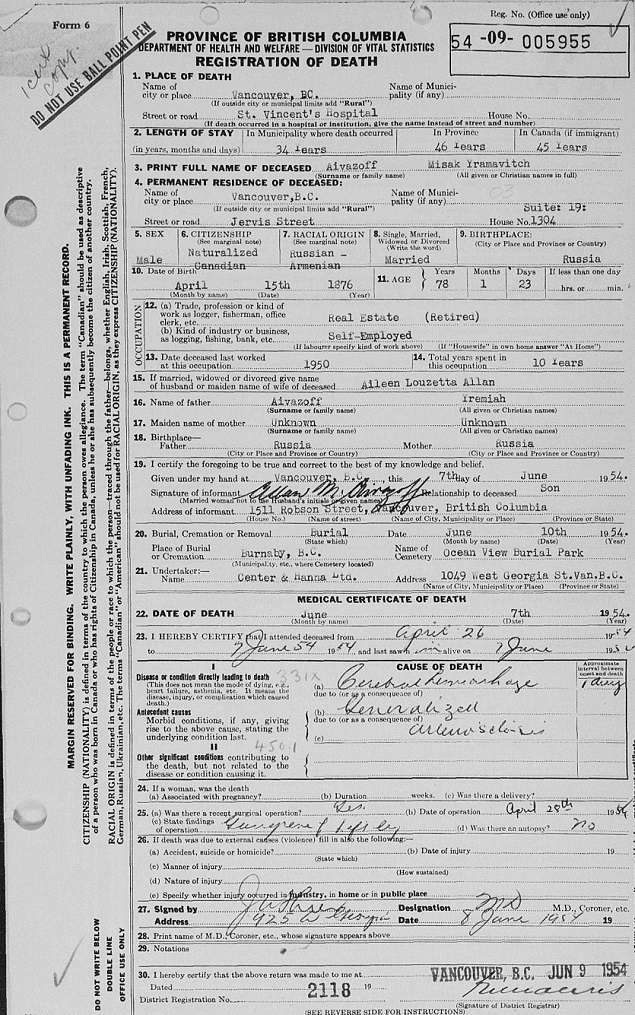 Form 6
Copy.
DO NOT USE BALL POINT PEN
Reg. No. (Office use only)
54 -09- 005955
PROVINCE OF BRITISH COLUMBIA
DEPARTMENT OF HEALTH AND WELFARE — DIVISION OF VITAL STATISTICS
REGISTRATION OF DEATH
1. PLACE OF DEATH
Name of city or place Vancouver, BC. Name of Municipality (if any)
(If outside city or municipal limits add "Rural")
Street or road St. Vincent's Hospital House No.
(If death occurred in a hospital or institution, give the name instead of street and number)
2. LENGTH OF STAY In Municipality where death occurred In Province In Canada (if immigrant)
(in years, months and days) 34 Years 46 Years 45 Years
3. PRINT FULL NAME OF DECEASED Aivazoff Misak Yramavitch
(Surname or family name) (All given or Christian names in full)
4. PERMANENT RESIDENCE OF DECEASED:
Name of city or place Vancouver,B.C. Name of Municipality (if any)
(If outside city or municipal limits add "Rural") Suite: 19:
Street or road Jervis Street House No. 1304
5. SEX 6. CITIZENSHIP 7. RACIAL ORIGIN 8. Single, Married, Widowed or Divorced 9. BIRTHPLACE:
(See marginal note) (See marginal note) (Write the word) (City or Place and Province or Country)
Male Naturalized Canadian Russian - Armenian Married Russia
10. Date of Birth 11. AGE Years Months Days If less than one day
April 15th 1876 78 1 23 hrs. or min.
(Month by name) (Date) (Year)
OCCUPATION
12. (a) Trade, profession or kind of work as logger, fisherman, office clerk, etc. Real Estate (Retired)
(b) Kind of industry or business, as logging, fishing, bank, etc. Self-Employed
(If labourer specify kind of work above) (If "Housewife" in own home answer "At Home")
13. Date deceased last worked at this occupation 1950 14. Total years spent in this occupation 10 Years
15. If married, widowed or divorced give name of husband or maiden name of wife of deceased Aileen Louzetta Allan
16. Name of father Aivazoff Yremiah
(Surname or family name) (All given or Christian names)
17. Maiden name of mother Unknown Unknown
(Surname or family name) (All given or Christian names)
18. Birthplace— Father Russia Mother Russia
(City or Place and Province or Country) (City or Place and Province or Country)
19. I certify the foregoing to be true and correct to the best of my knowledge and belief.
Given under my hand at Vancouver, B.C., this 7th day of June 1954.
Signature of informant Allan M. Aivazoff Relationship to deceased Son
(Married woman not husband's initials or given names)
Address of informant 1511 Robson Street, Vancouver, British Columbia
(House No.) (Name of street) (Name of City, Municipality or Place) (Province or State)
20. Burial, Cremation or Removal Burial Date June 10th 1954.
(State which) (Month by name) (Date) (Year)
Place of Burial or Cremation Burnaby, B.C. Name of Cemetery Ocean View Burial Park
(Municipality, etc., where Cemetery located)
21. Undertaker:— Name Center & Hanna Ltd. Address 1049 West Georgia St.Van.B.C.
(Name of City, Municipality or Place) (Province or State)
MEDICAL CERTIFICATE OF DEATH
22. DATE OF DEATH June 7th 1954.
(Month by name) (Date) (Year)
23. I HEREBY CERTIFY that I attended deceased from April 26 1954
to 7 June 54 1954, and last saw him alive on 7 June 195
I CAUSE OF DEATH Approximate interval between onset and death
Disease or condition directly leading to death 331X (a) Cerebral hemorrhage
(This does not mean the mode of dying, e.g., heart failure, asthenia, etc. It means the disease, injury, or complication which caused death.) due to (or as a consequence of)
Antecedent causes (b) Generalized
Morbid conditions, if any, giving rise to the above cause, stating the underlying condition last. due to (or as a consequence of) arteriosclerosis
450.1 (c)
II
Other significant conditions contributing to the death, but not related to the disease or condition causing it.
24. If a woman, was the death
(a) Associated with pregnancy? (b) Duration weeks. (c) Was there a delivery?
25. (a) Was there a recent surgical operation? Yes (b) Date of operation April 28th 1954
(c) State findings of operation Gangrene of left leg (d) Was there an autopsy? No
26. If death was due to external causes (violence) fill in also the following:—
(a) Accident, suicide or homicide? (b) Date of injury 19
(State which)
(c) Manner of injury
(How sustained)
(d) Nature of injury
(e) Specify whether injury occurred in industry, in home or in public place
27. Signed by Designation MD M.D., Coroner, etc.
Address 925 W Georgia Date 8 June 1954 19
28. Print name of M.D., Coroner, etc., whose signature appears above
29. Notations
30. I hereby certify that the above return was made to me at VANCOUVER, B.C. JUN 9 1954
Dated 19
District Registration No. 2118
(Signature of District Registrar)
(SEE REVERSE SIDE FOR INSTRUCTIONS)
MARGIN RESERVED FOR BINDING. WRITE PLAINLY, WITH UNFADING INK. THIS IS A PERMANENT RECORD.
CITIZENSHIP (NATIONALITY) is defined in terms of the country to which the person owes allegiance. The term "Canadian" should be used as descriptive
of a person who was born in Canada or who has rights of Citizenship in Canada, unless he or she has subsequently become the citizen of another country.
RACIAL ORIGIN is defined in terms of the people or race to which the person—traced through the father—belongs, whether English, Irish, Scottish, French,
German, Russian, Ukrainian, etc. The terms "Canadian" or "American" should not be used for RACIAL ORIGIN, as they express CITIZENSHIP (NATIONALITY).
DO NOT WRITE BELOW
DOUBLE LINE
OFFICE USE ONLY